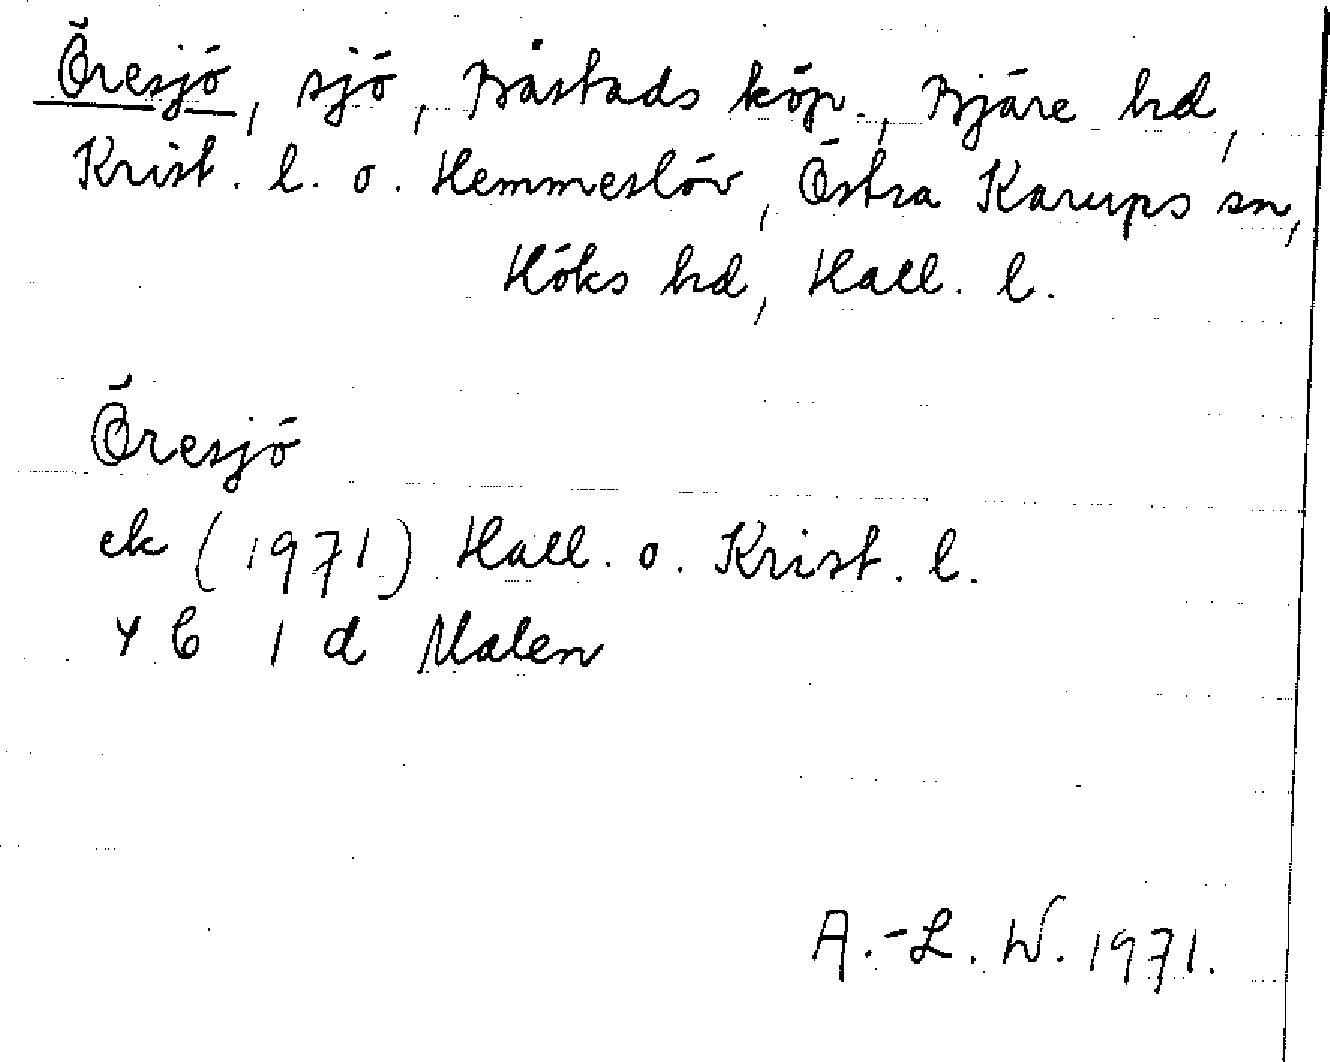 Öresjö, sjö, Båstads köp., Bjäre hd,
Krist. l. o. Hemmeslöv, Östra Karups sn,
Höks hd, Hall. l.
Öresjö
ek (1971) Hall. o. Krist. l.
4 C 1 d Malen
A.-L. W. 1971.